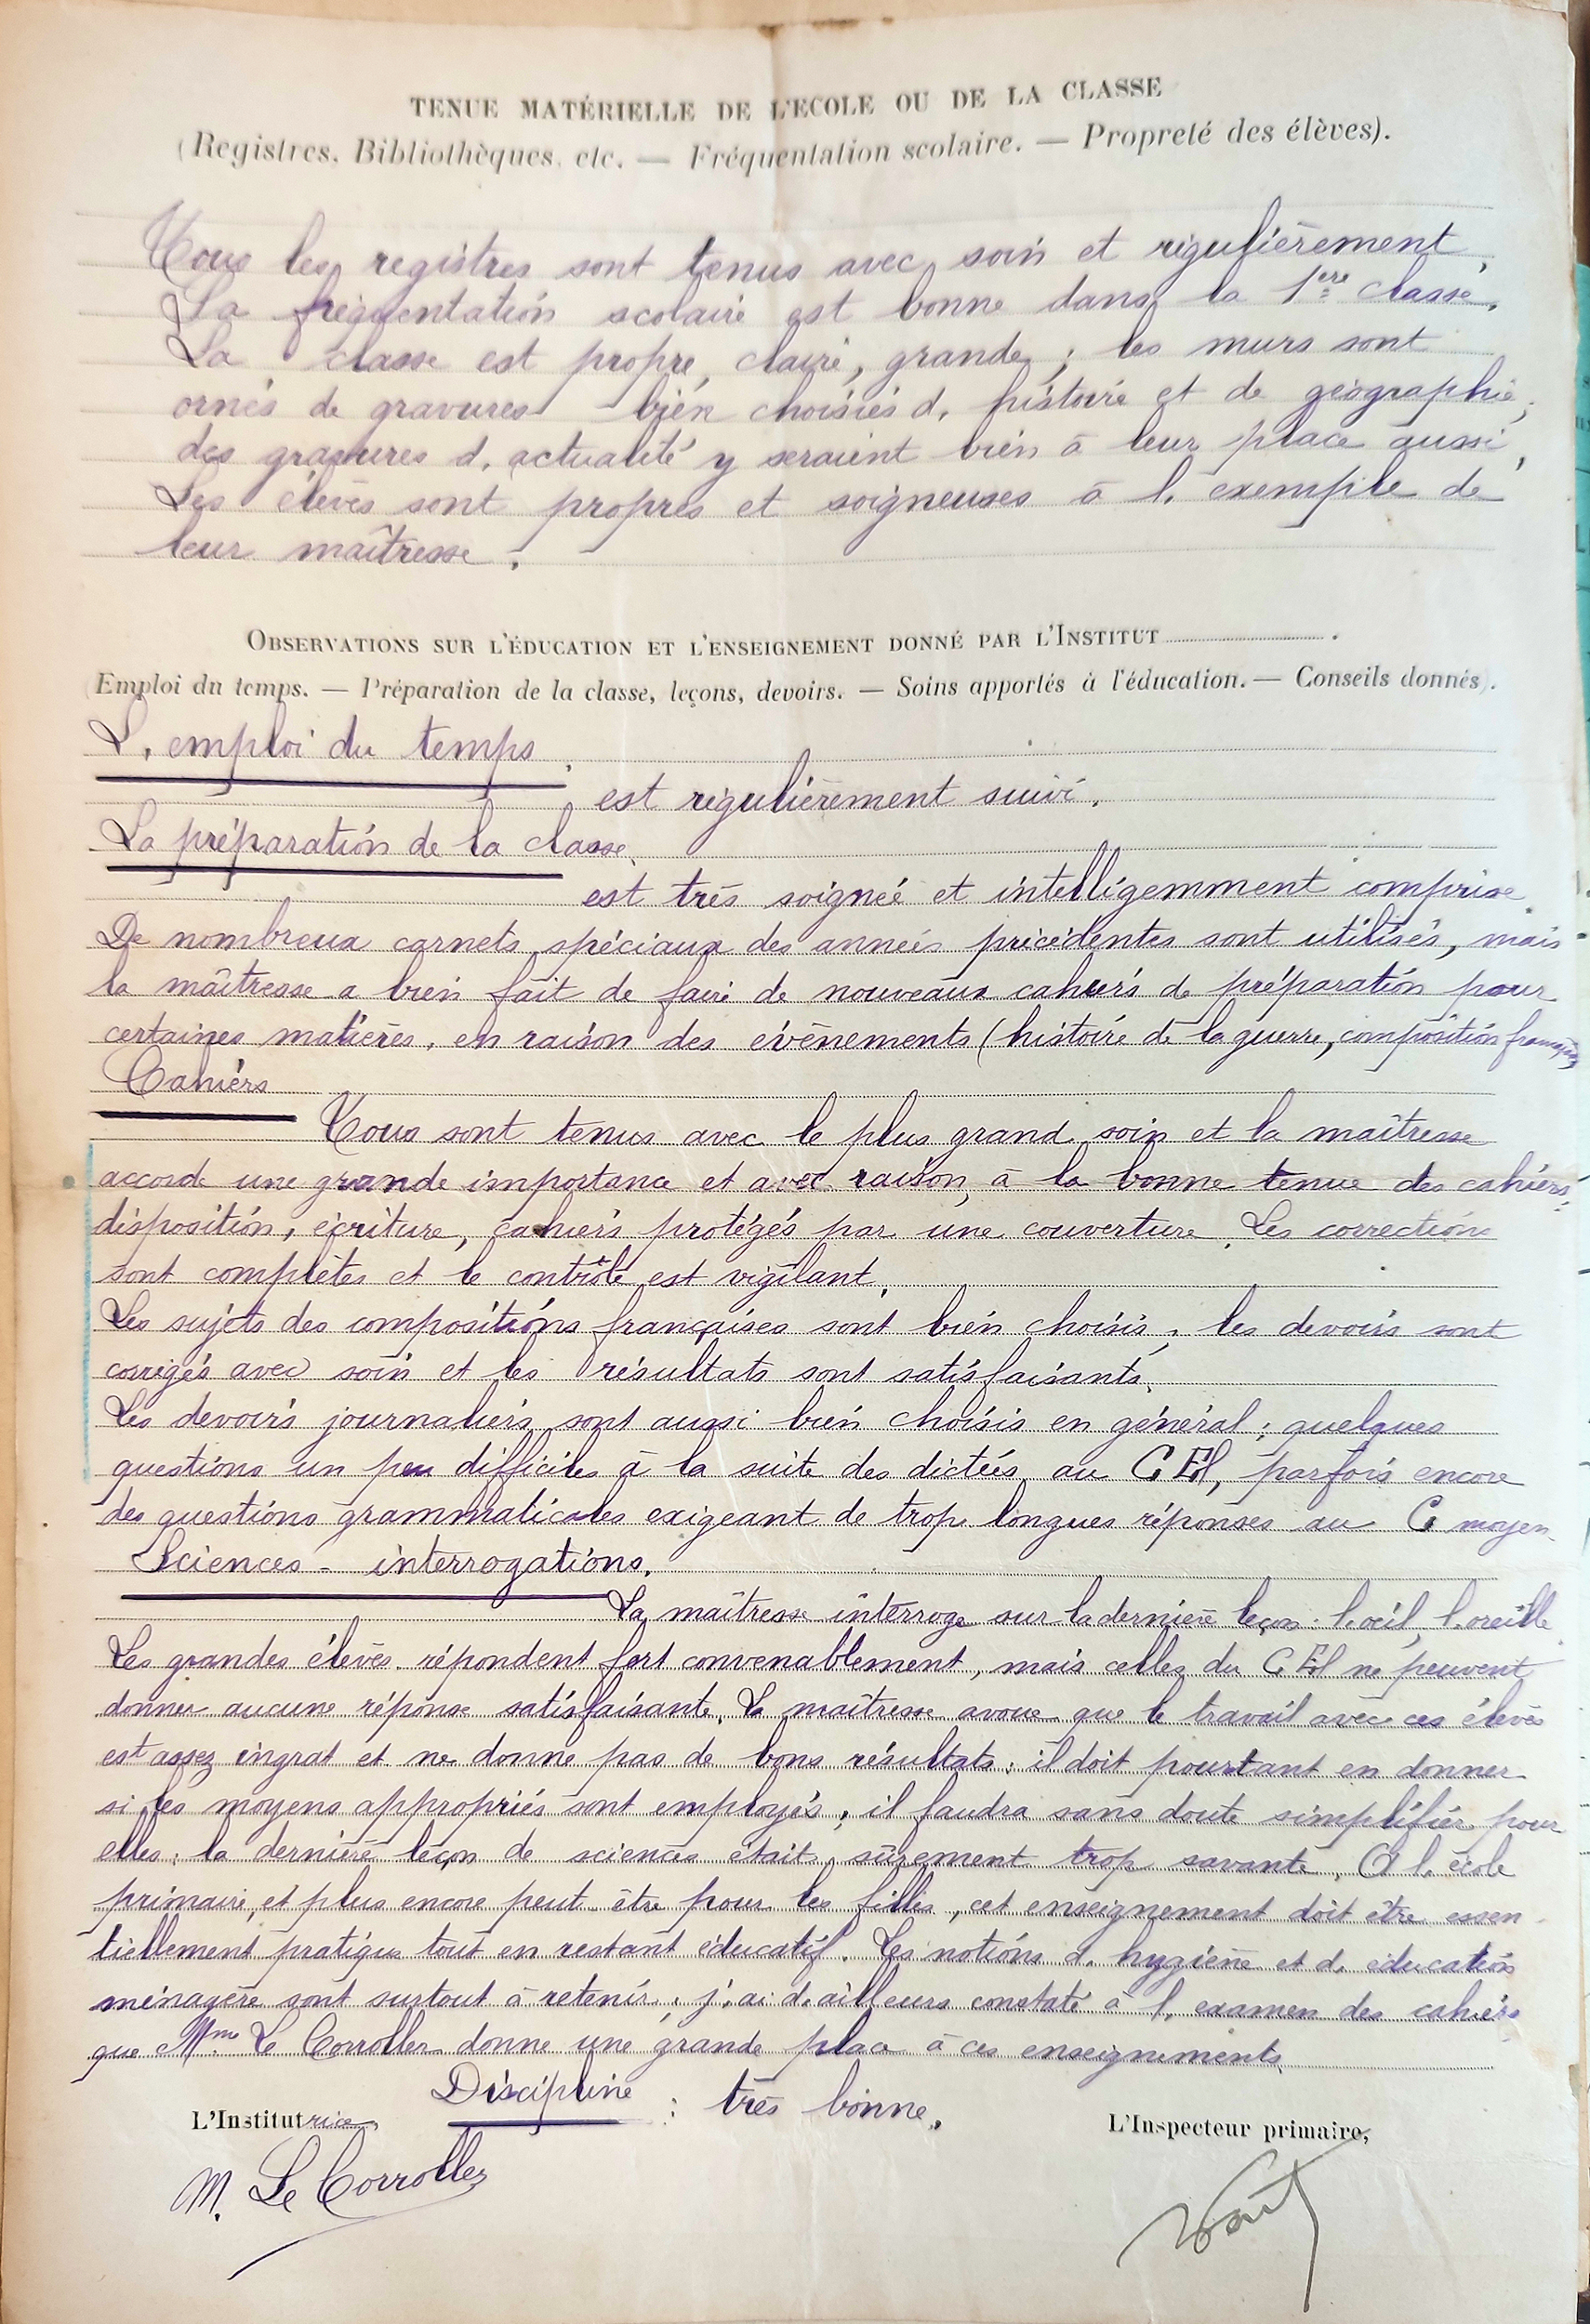 TENUE MATÉRIELLE DE L'ECOLE OU DE LA CLASSE
(Registres, Bibliothèques, etc. — Fréquentation scolaire. — Propreté des élèves).
Tous les registres sont tenus avec soin et régulièrement.
La fréquentation scolaire est bonne dans la 1ère classe.
La classe est propre, claire, grande ; les murs sont
ornés de gravures bien choisies d'histoire et de géographie ;
des gravures d'actualité y seraient bien à leur place aussi.
Les élèves sont propres et soigneuses à l'exemple de
leur maîtresse.
OBSERVATIONS SUR L'ÉDUCATION ET L'ENSEIGNEMENT DONNÉ PAR L'INSTITUT
(Emploi du temps. — Préparation de la classe, leçons, devoirs. — Soins apportés à l'éducation. — Conseils donnés).
L'emploi du temps.
est régulièrement suivi.
La préparation de la classe.
est très soignée et intelligemment comprise.
De nombreux carnets spéciaux des années précédentes sont utilisés, mais
la maîtresse a bien fait de faire de nouveaux cahiers de préparation pour
certaines matières, en raison des évènements (histoire de la guerre, composition française)
Cahiers
Tous sont tenus avec le plus grand soin et la maîtresse
accorde une grande importance et avec raison, à la bonne tenue des cahiers :
disposition, écriture, cahiers protégés par une couverture. Les corrections
sont complètes et le contrôle est vigilant.
Les sujets des compositions françaises sont bien choisis, les devoirs sont
corrigés avec soin et les résultats sont satisfaisants.
Les devoirs journaliers sont aussi bien choisis en général ; quelques
questions un peu difficiles à la suite des dictées au C El, parfois encore
des questions grammaticales exigeant de trop longues réponses au C moyen.
Sciences - interrogations.
La maîtresse interroge sur la dernière leçon : l'oeil, l'oreille.
Les grandes élèves répondent fort convenablement, mais celles du C El ne peuvent
donner aucune réponse satisfaisante. La maîtresse avoue que le travail avec ces élèves
est assez ingrat et ne donne pas de bons résultats ; il doit pourtant en donner
si les moyens appropriés sont employés ; il faudra sans doute simplifier pour
elles : la dernière leçon de sciences était sûrement trop savante. A l'école
primaire, et plus encore peut-être pour les filles, cet enseignement doit être essen-
tiellement pratique tout en restant éducatif. Les notions d'hygiène et d'éducation
ménagère sont surtout à retenir ; j'ai d'ailleurs constaté à l'examen des cahiers
que Mme Le Corroller donne une grande place à ces enseignements.
Discipline : très bonne.
L'Institutrice,
L'Inspecteur primaire,
M. Le Corroller